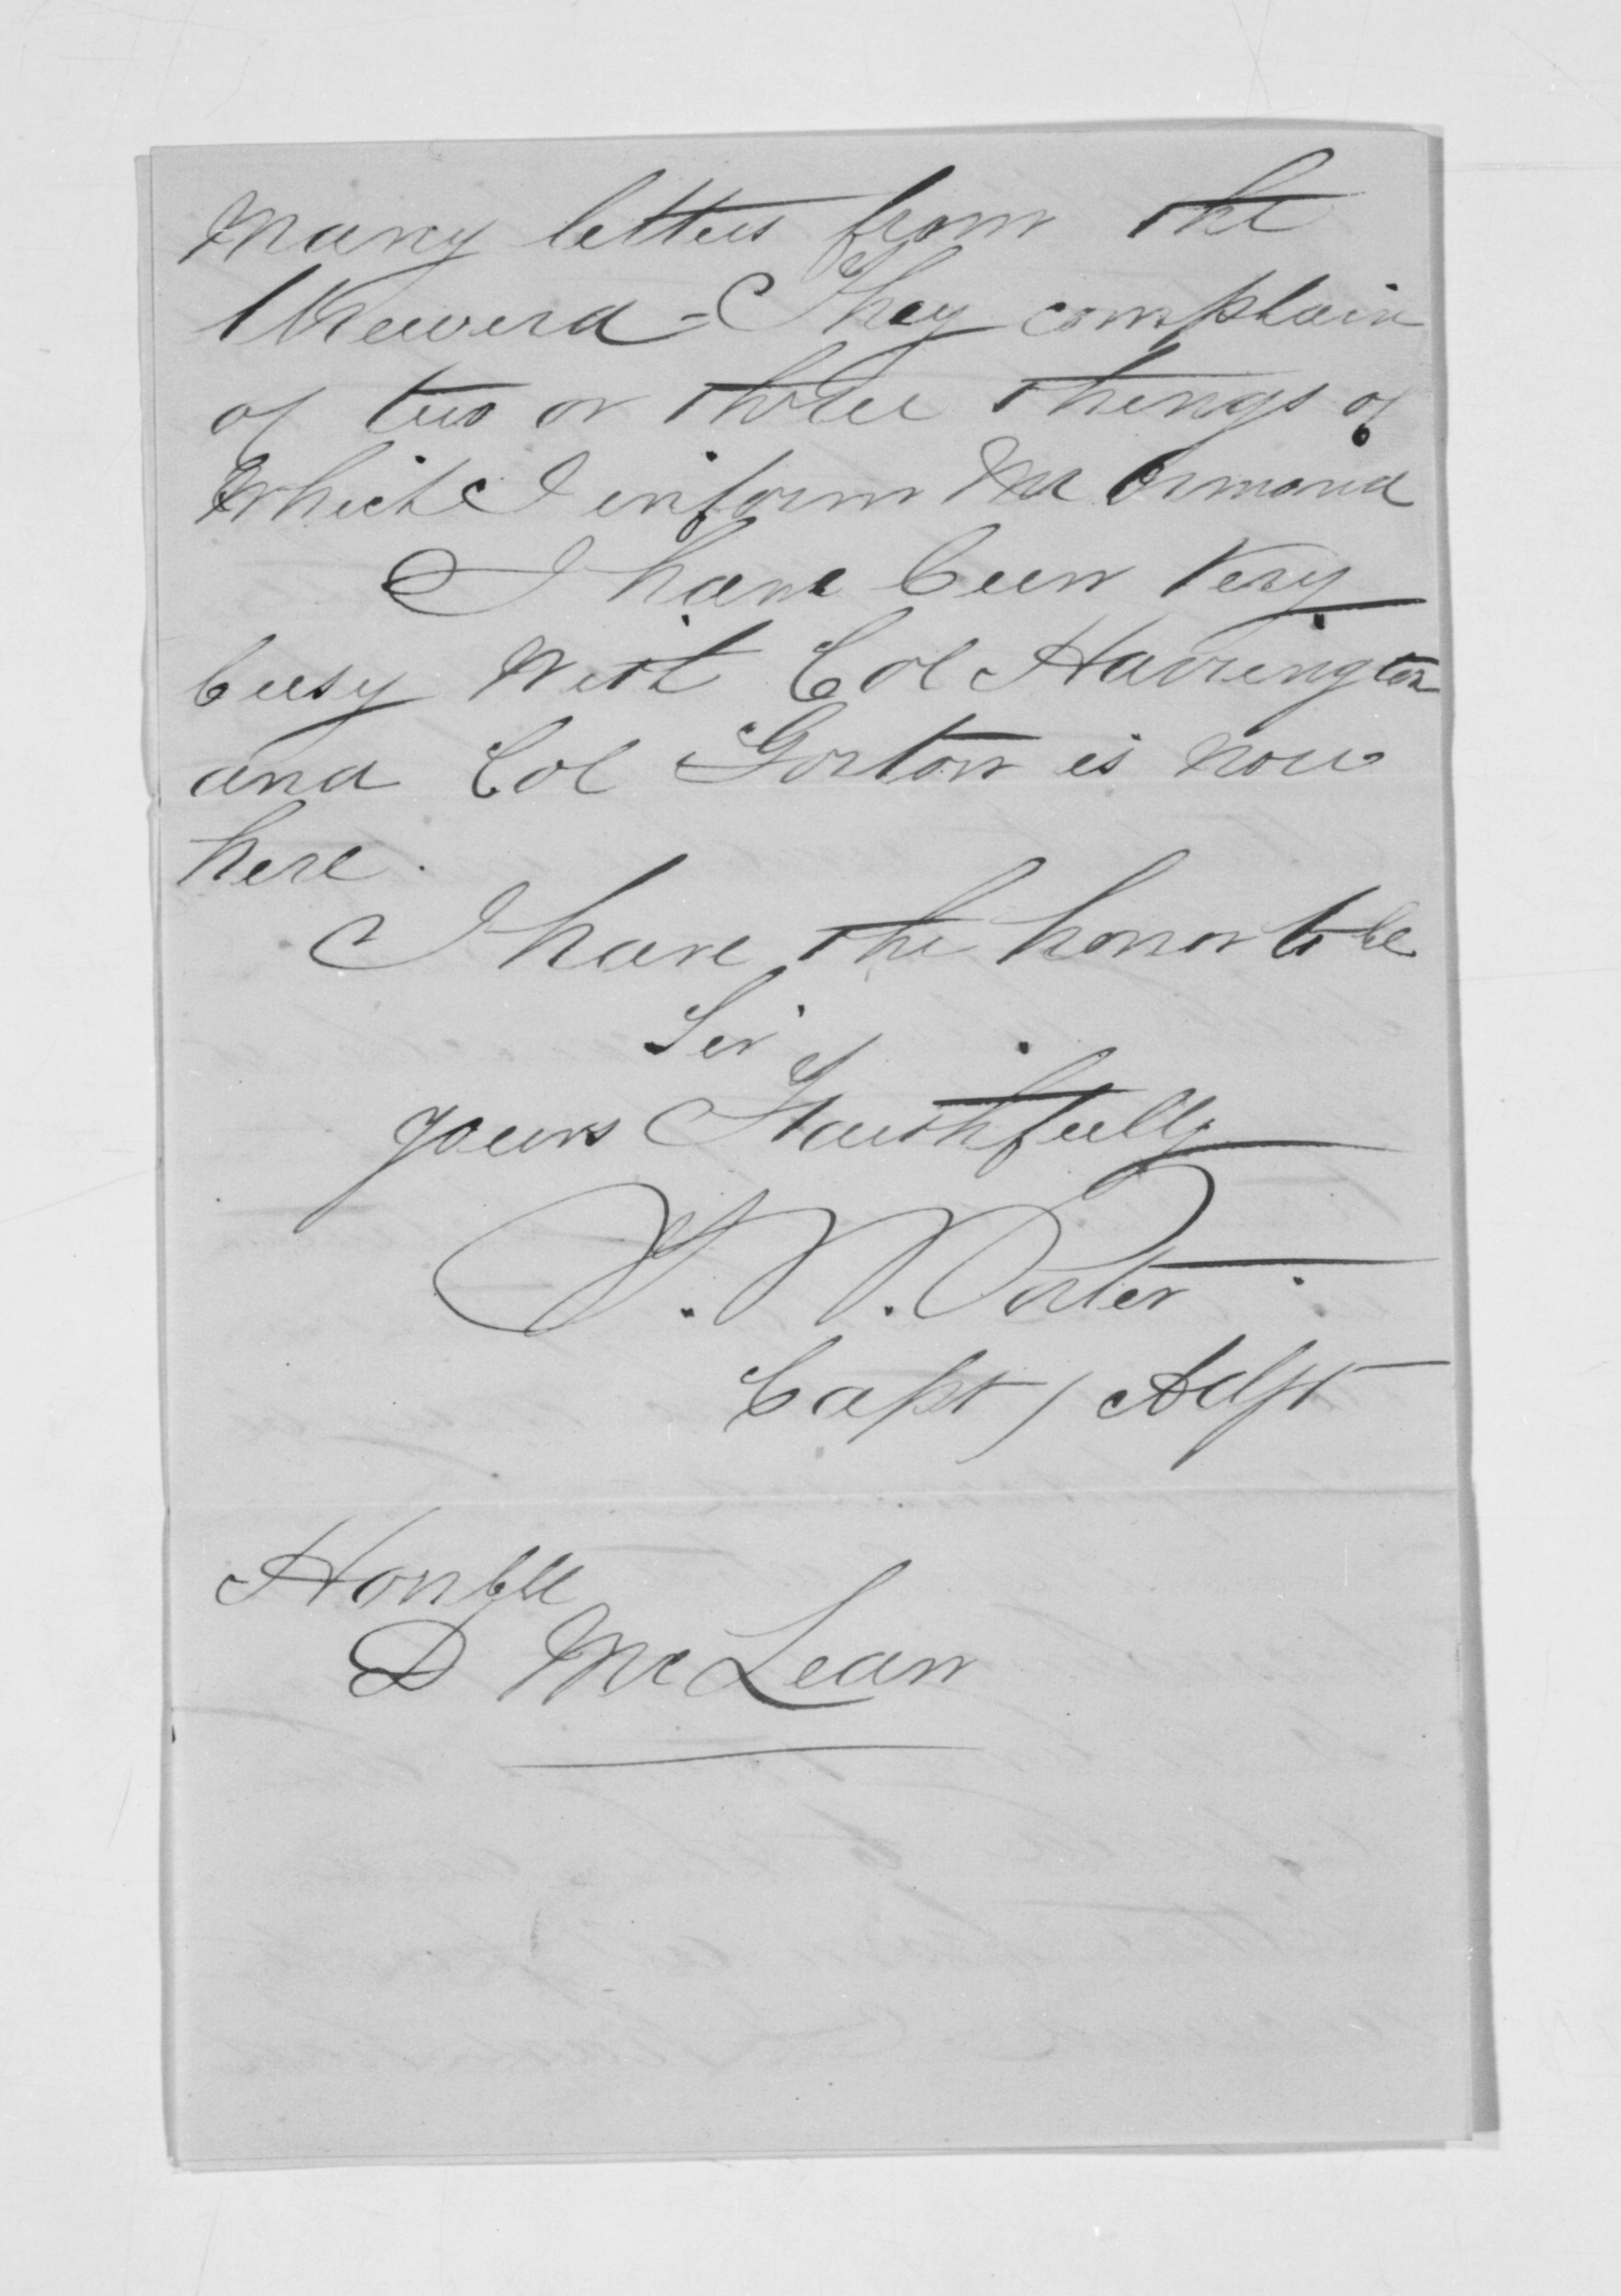 many letters from the
Urewera - They complain
of two or three things of
which I inform Mr Ormond
I have been very
busy with Col Harrington
and Col Gorton is now
here.
I have the honor to be
Sir
yours Faithfully
J. W. Porter
Capt / Adjt
Honble
D McLean